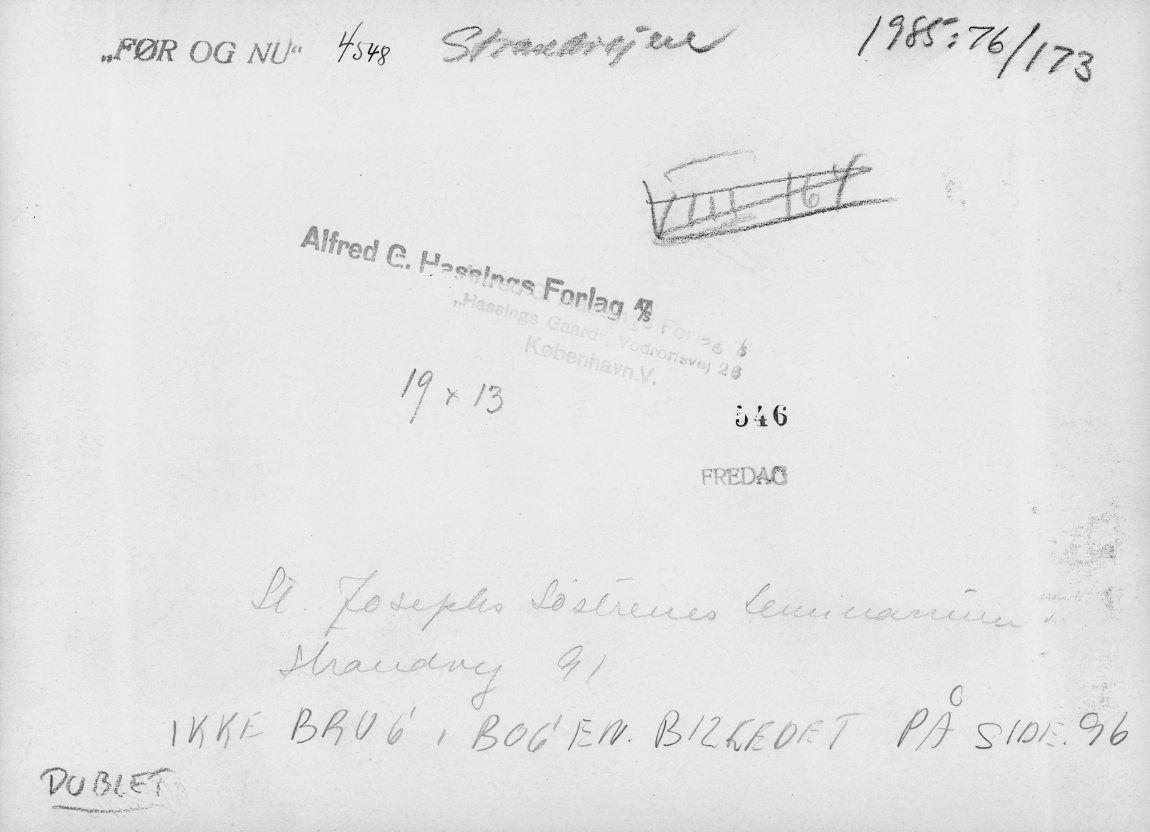 „FØR OG NU“ 4548 Strandvejene 1985:76/173
VIII 164
Alfred G. Hassings Forlag A/S
Alfred G. Hassings Forlag A/S
„Hassings Gaard“, Vodroffsvej 26
København.V.
19 x 13
546
FREDAG
St. Josephs Søstrenes Seminarium
Strandvej 91
IKKE BRUG I BOGEN. BILLEDET PÅ SIDE. 96
DUBLET